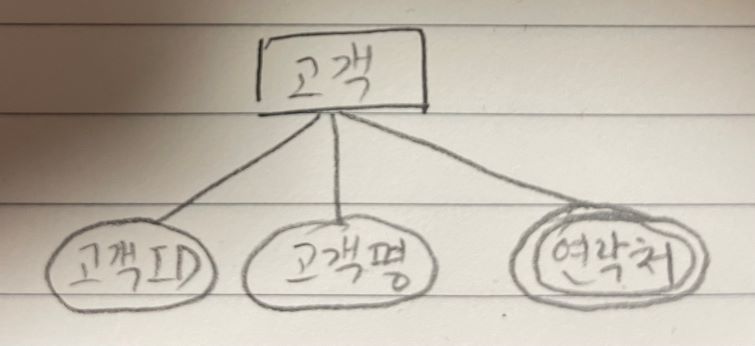 고객
고객ID 고객명 연락처